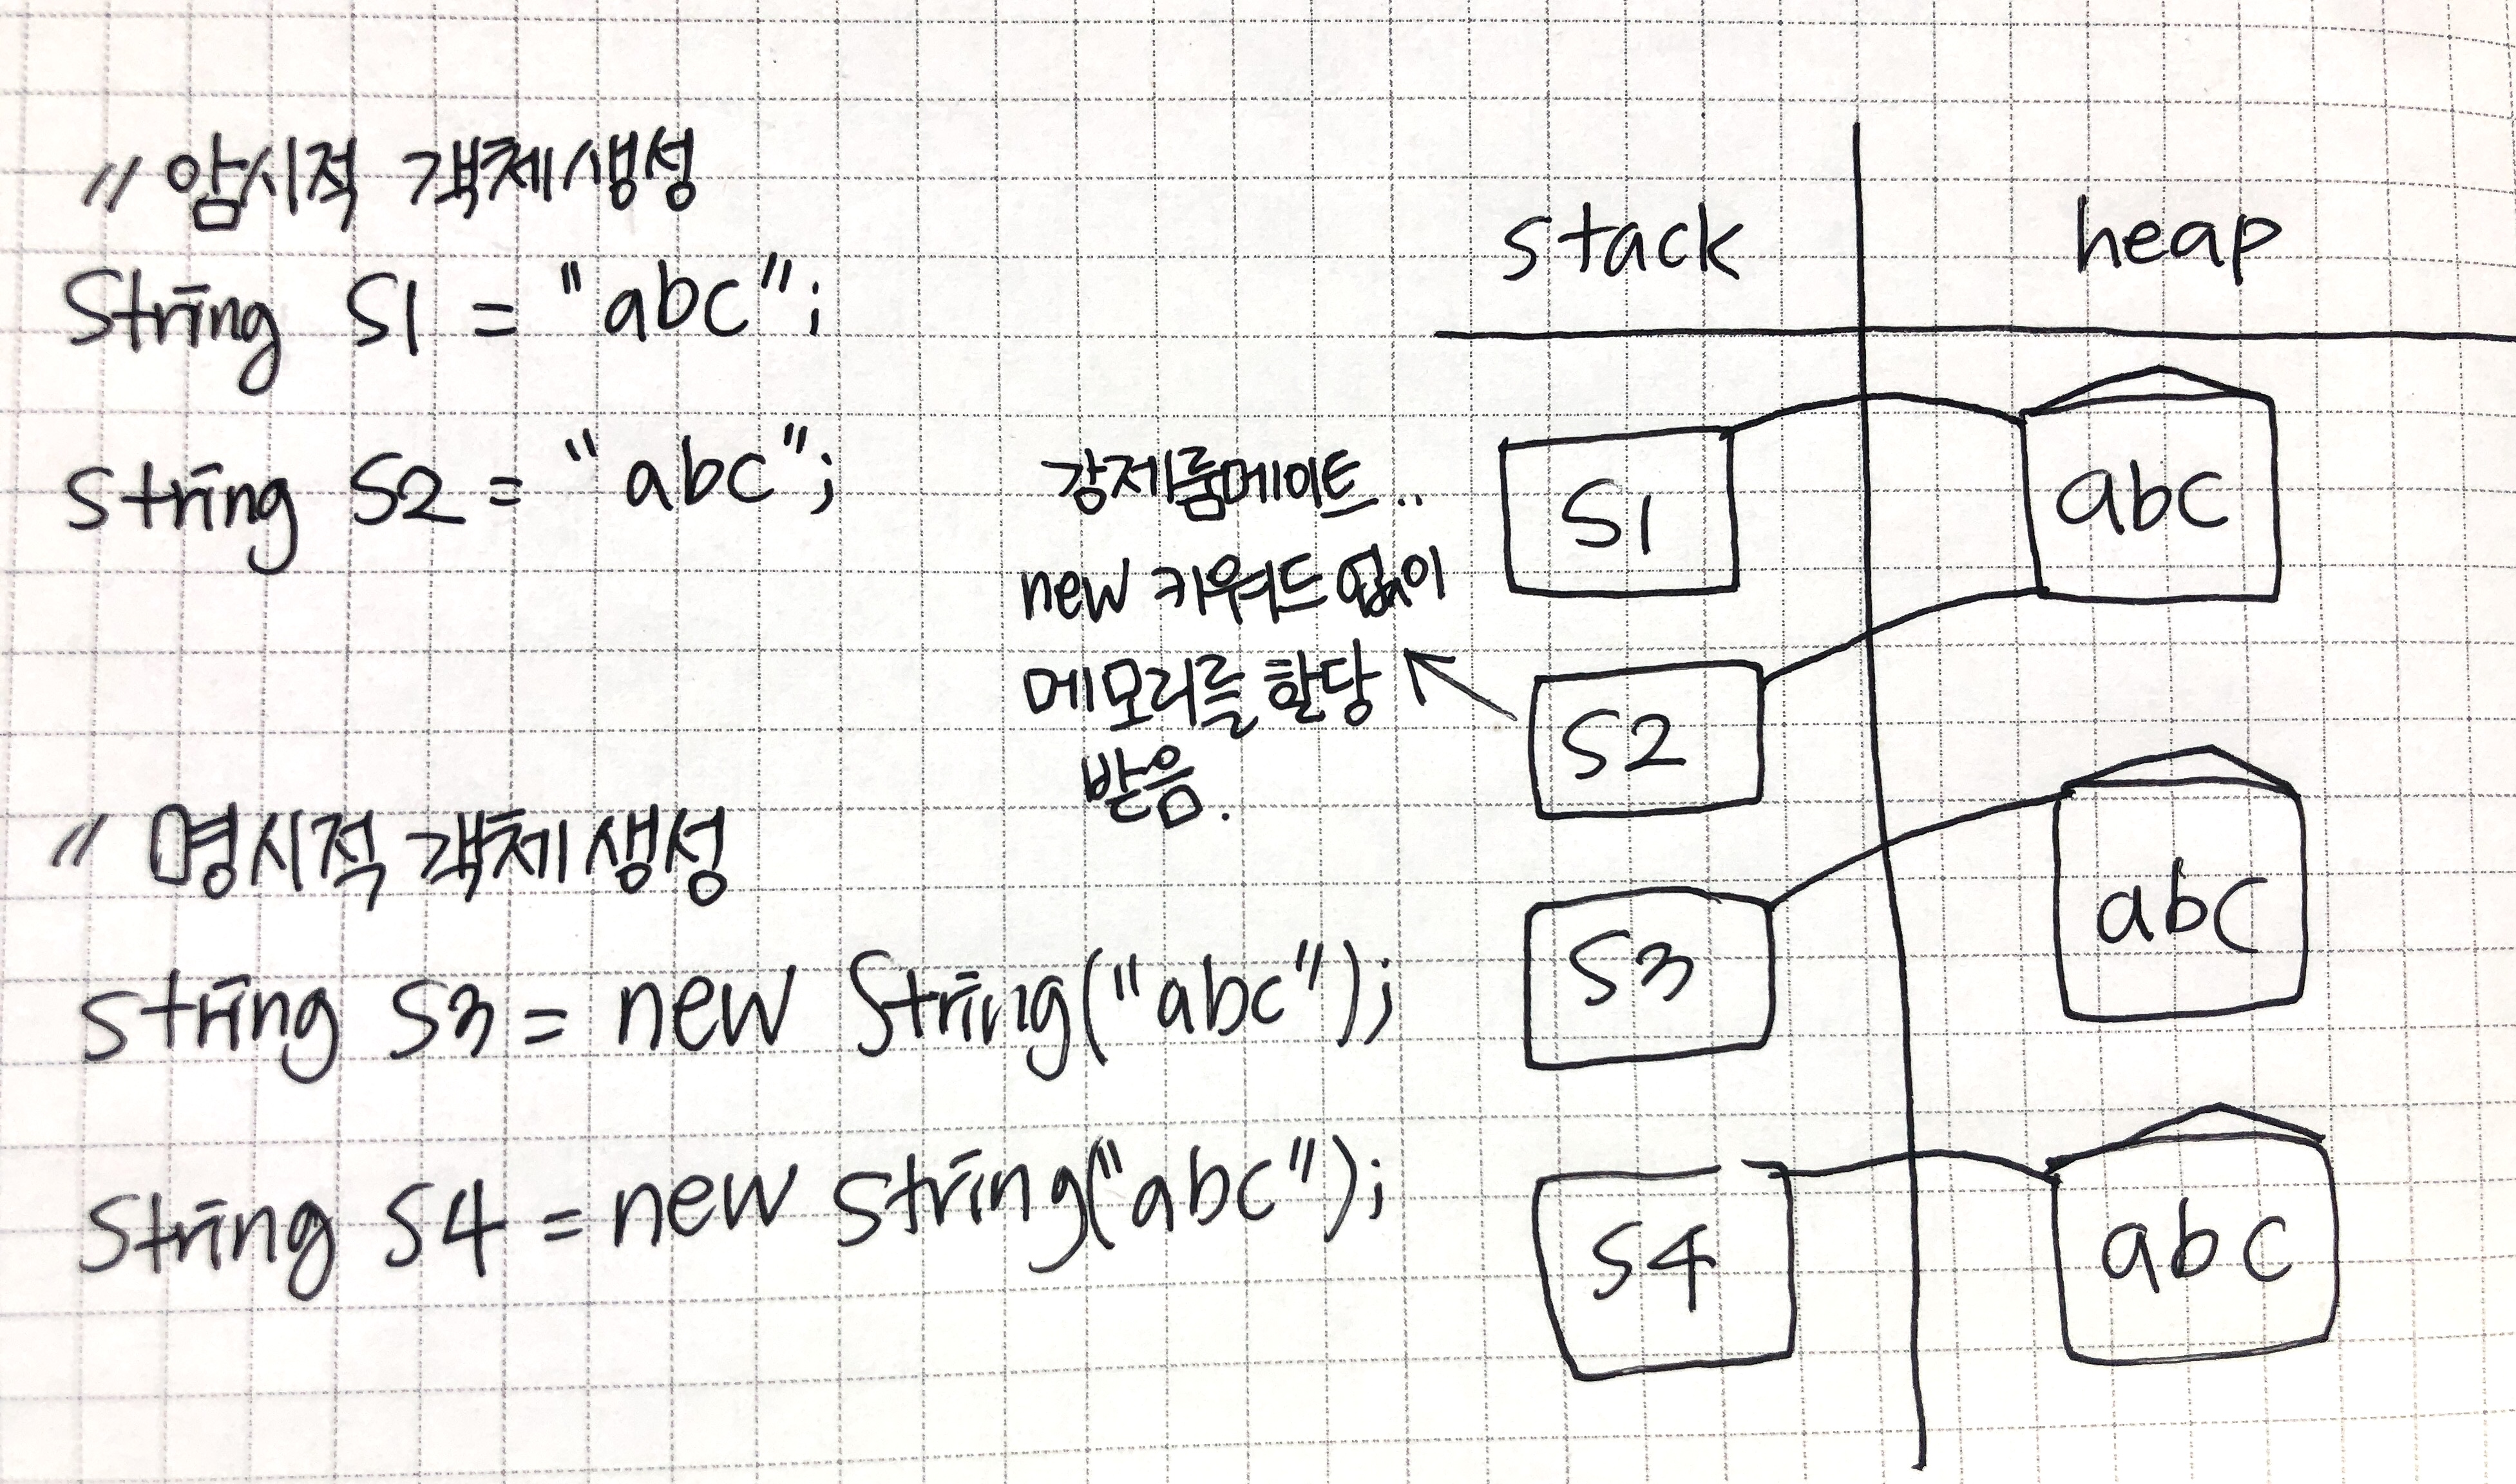 // 암시적 객체생성
String S1 = "abc";
String S2 = "abc";
// 명시적 객체생성
String S3 = new String("abc");
String S4 = new String("abc");
강제룸메이트..
new 키워드 없이
메모리를 할당
받음.
stack heap
S1 abc
S2
S3 abc
S4 abc